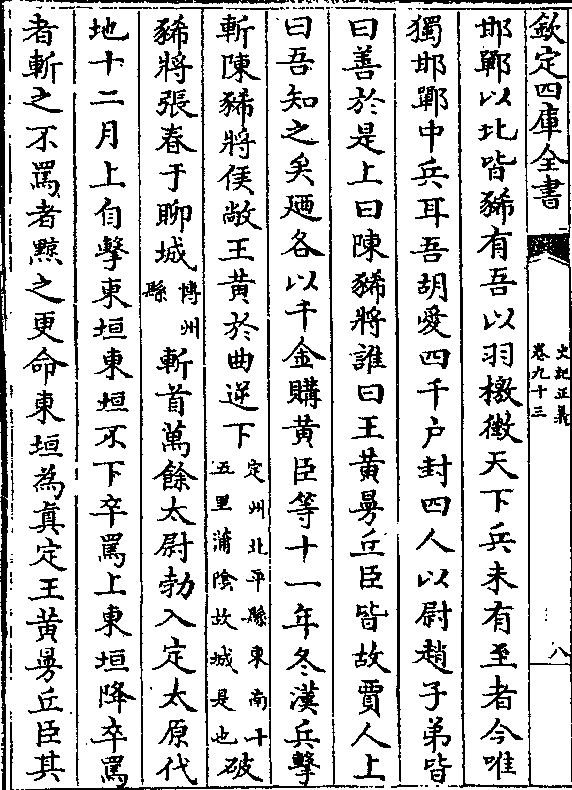 欽定四庫全書
史記正義
卷九十三
八
邯鄲以北皆豨有吾以羽檄徴天下兵未有至者今唯
獨邯鄲中兵耳吾胡愛四千户封四人以尉趙子弟皆
曰善於是上曰陳豨將誰曰王黄曼丘臣皆故賈人上
曰吾知之矣廼各以千金購黄臣等十一年冬漢兵擊
斬陳豨將侯敞王黄於曲逆下定州北平縣東南十五里蒲陰故城是也破
豨將張春于聊城博州縣斬首萬餘太尉勃入定太原代
地十二月上自擊東垣東垣不下卒罵上東垣降卒罵
者斬之不罵者黥之更命東垣為真定王黄曼丘臣其